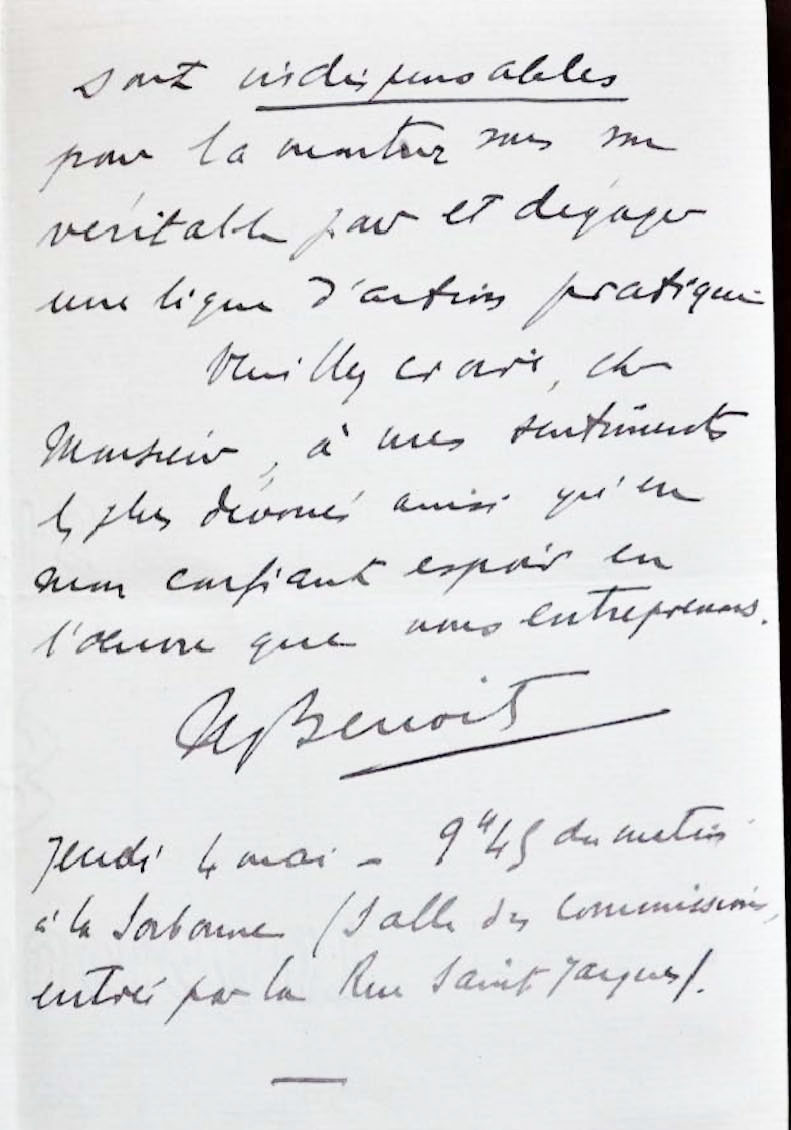 sont indispensables
pour la montrer sous son
véritable jour et dégager
une ligne d'action pratique
Veuillez croire, cher
Monsieur, à mes sentiments
les plus dévoués ainsi qu'en
mon confiant espoir en
l'œuvre que nous entreprenons.
Benoit
Jeudi 4 mai - 9h45 du matin
à la Sorbonne (Salle des Commissions,
entrée par la Rue Saint Jacques).